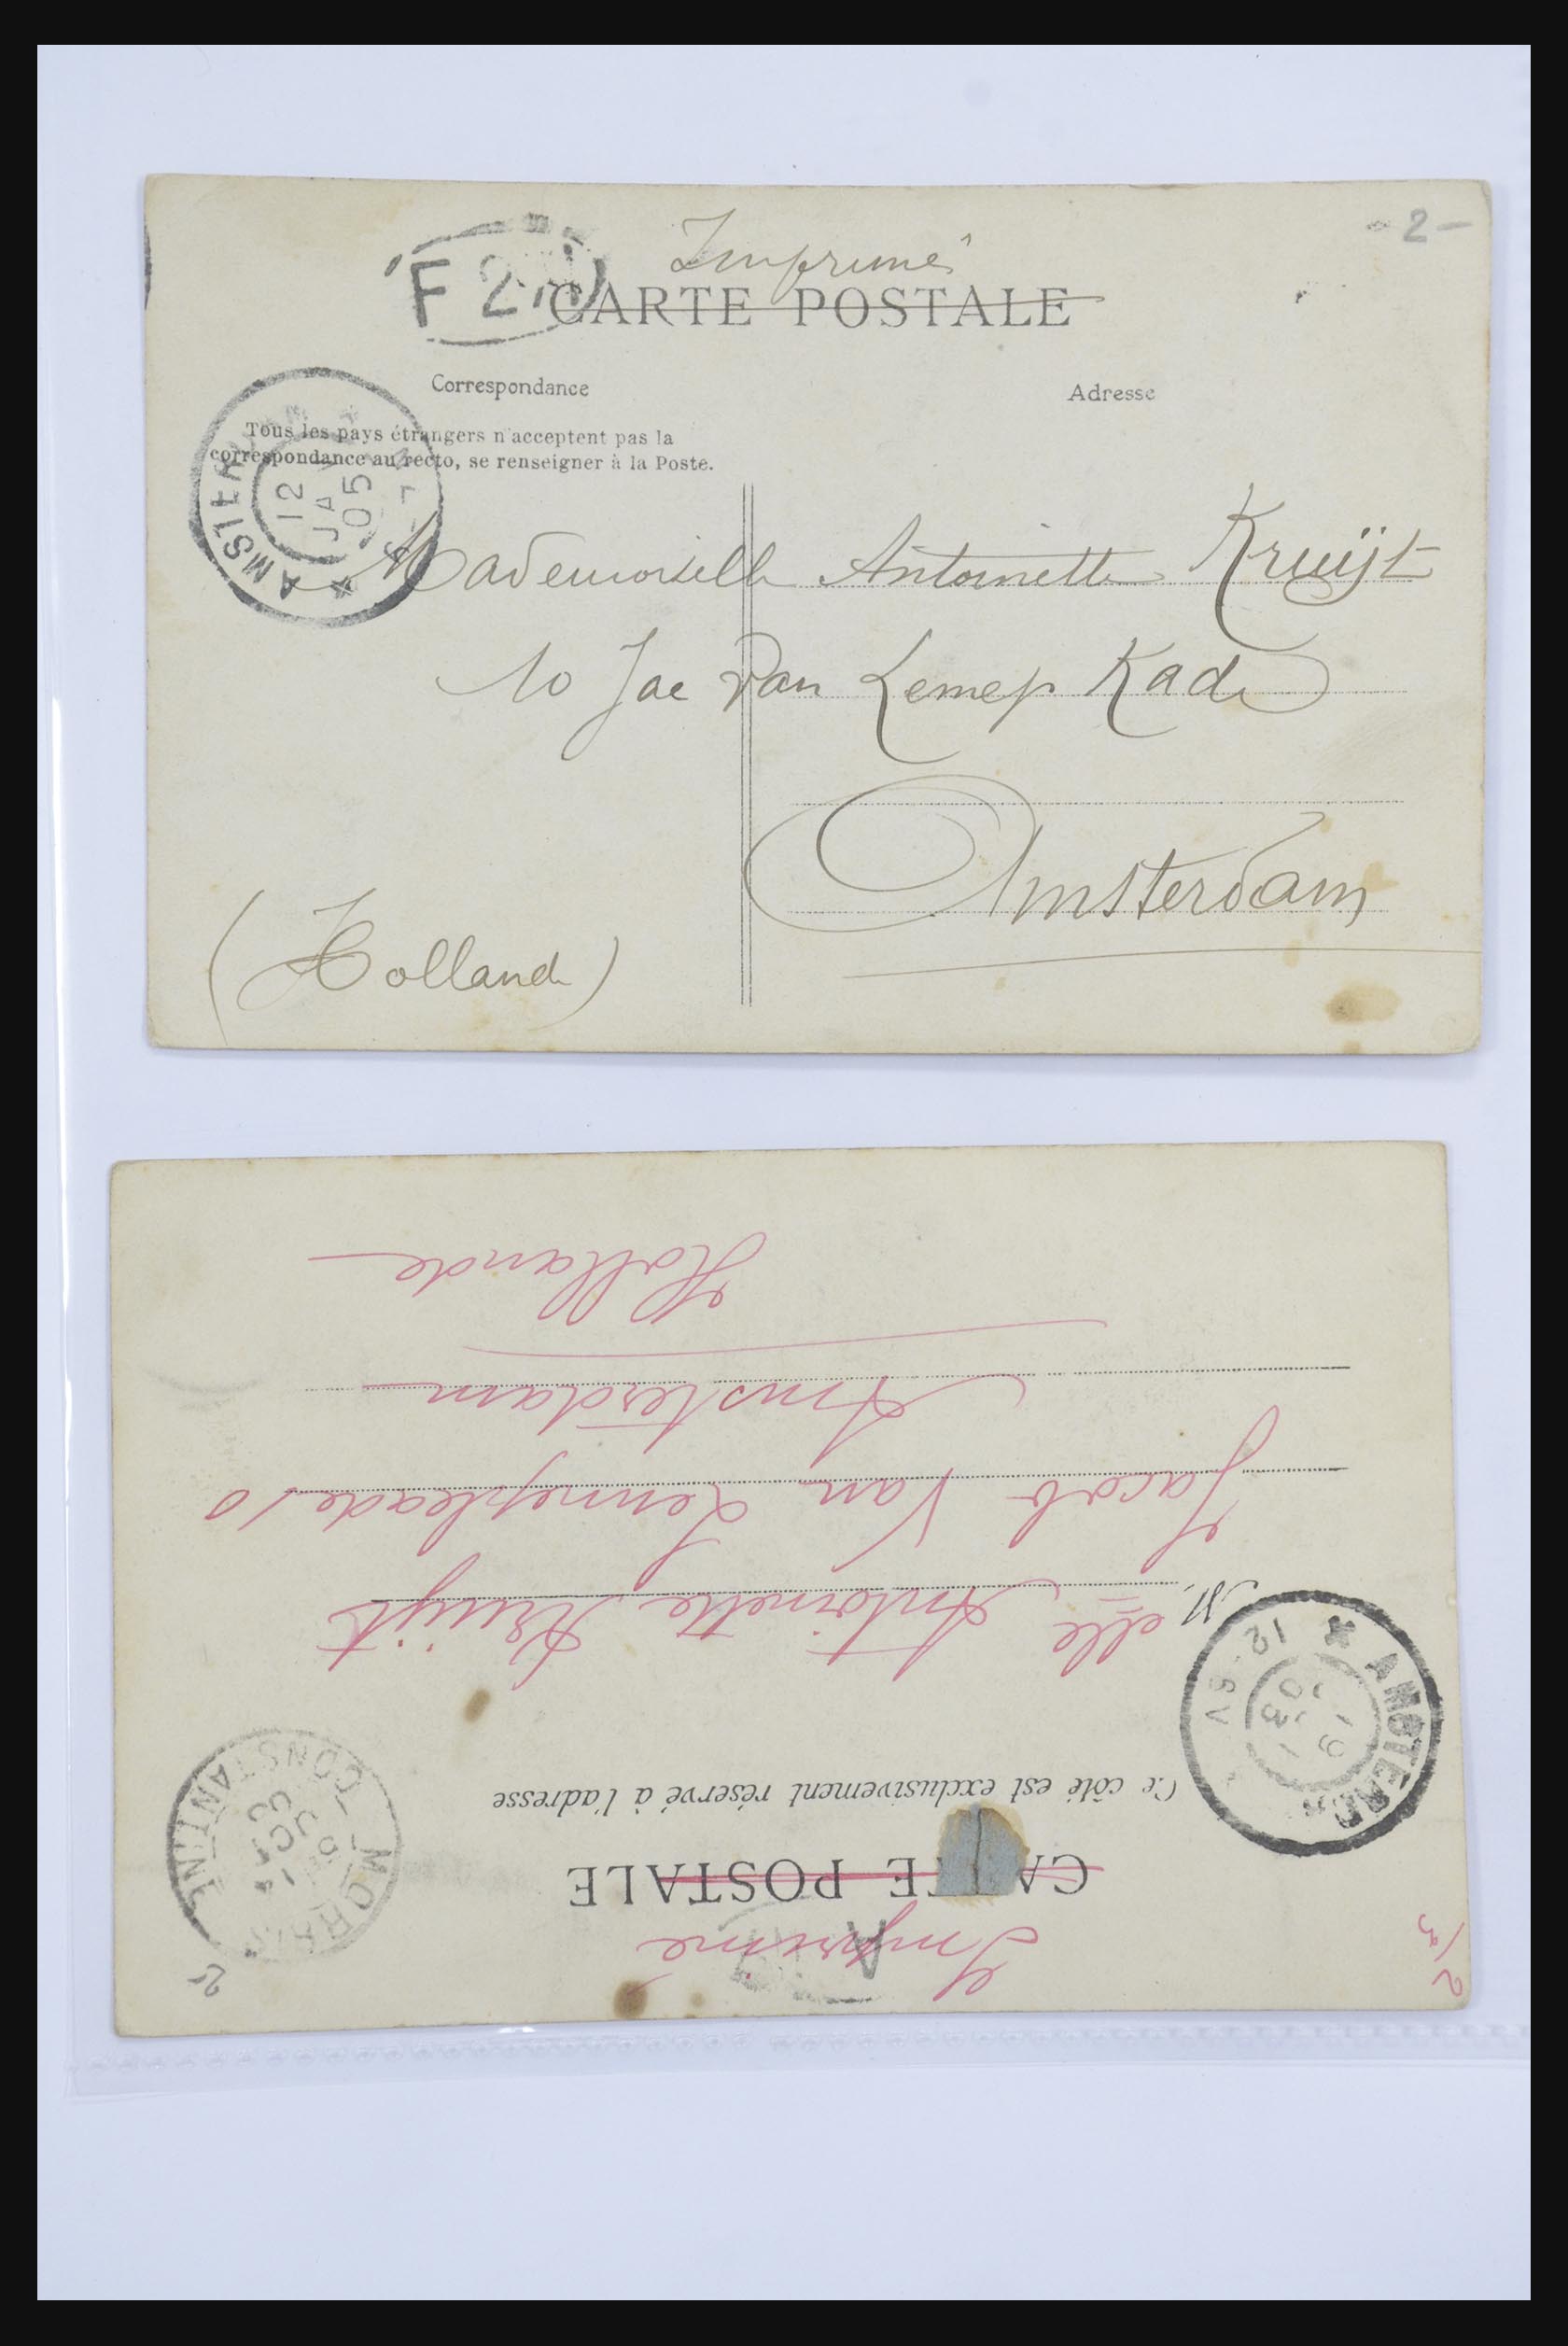 - 2 -
Imprimé
F 2
CARTE POSTALE
Correspondance
Adresse
Tous les pays étrangers n'acceptent pas la
correspondance au recto, se renseigner à la Poste.
AMSTERDAM
12 JA 05
Mademoiselle Antoinette Kruijt
10 Jac Van Lennep Kade
Amsterdam
(Hollande)
2
Imprimé
A
CARTE POSTALE
Ce côté est exclusivement réservé à l'adresse
CONSTANTINE
AMSTERDAM
12-6V
03
M. elle Antoinette Kruijt
Jacob Van Lennepkade 10
Amsterdam
Hollande